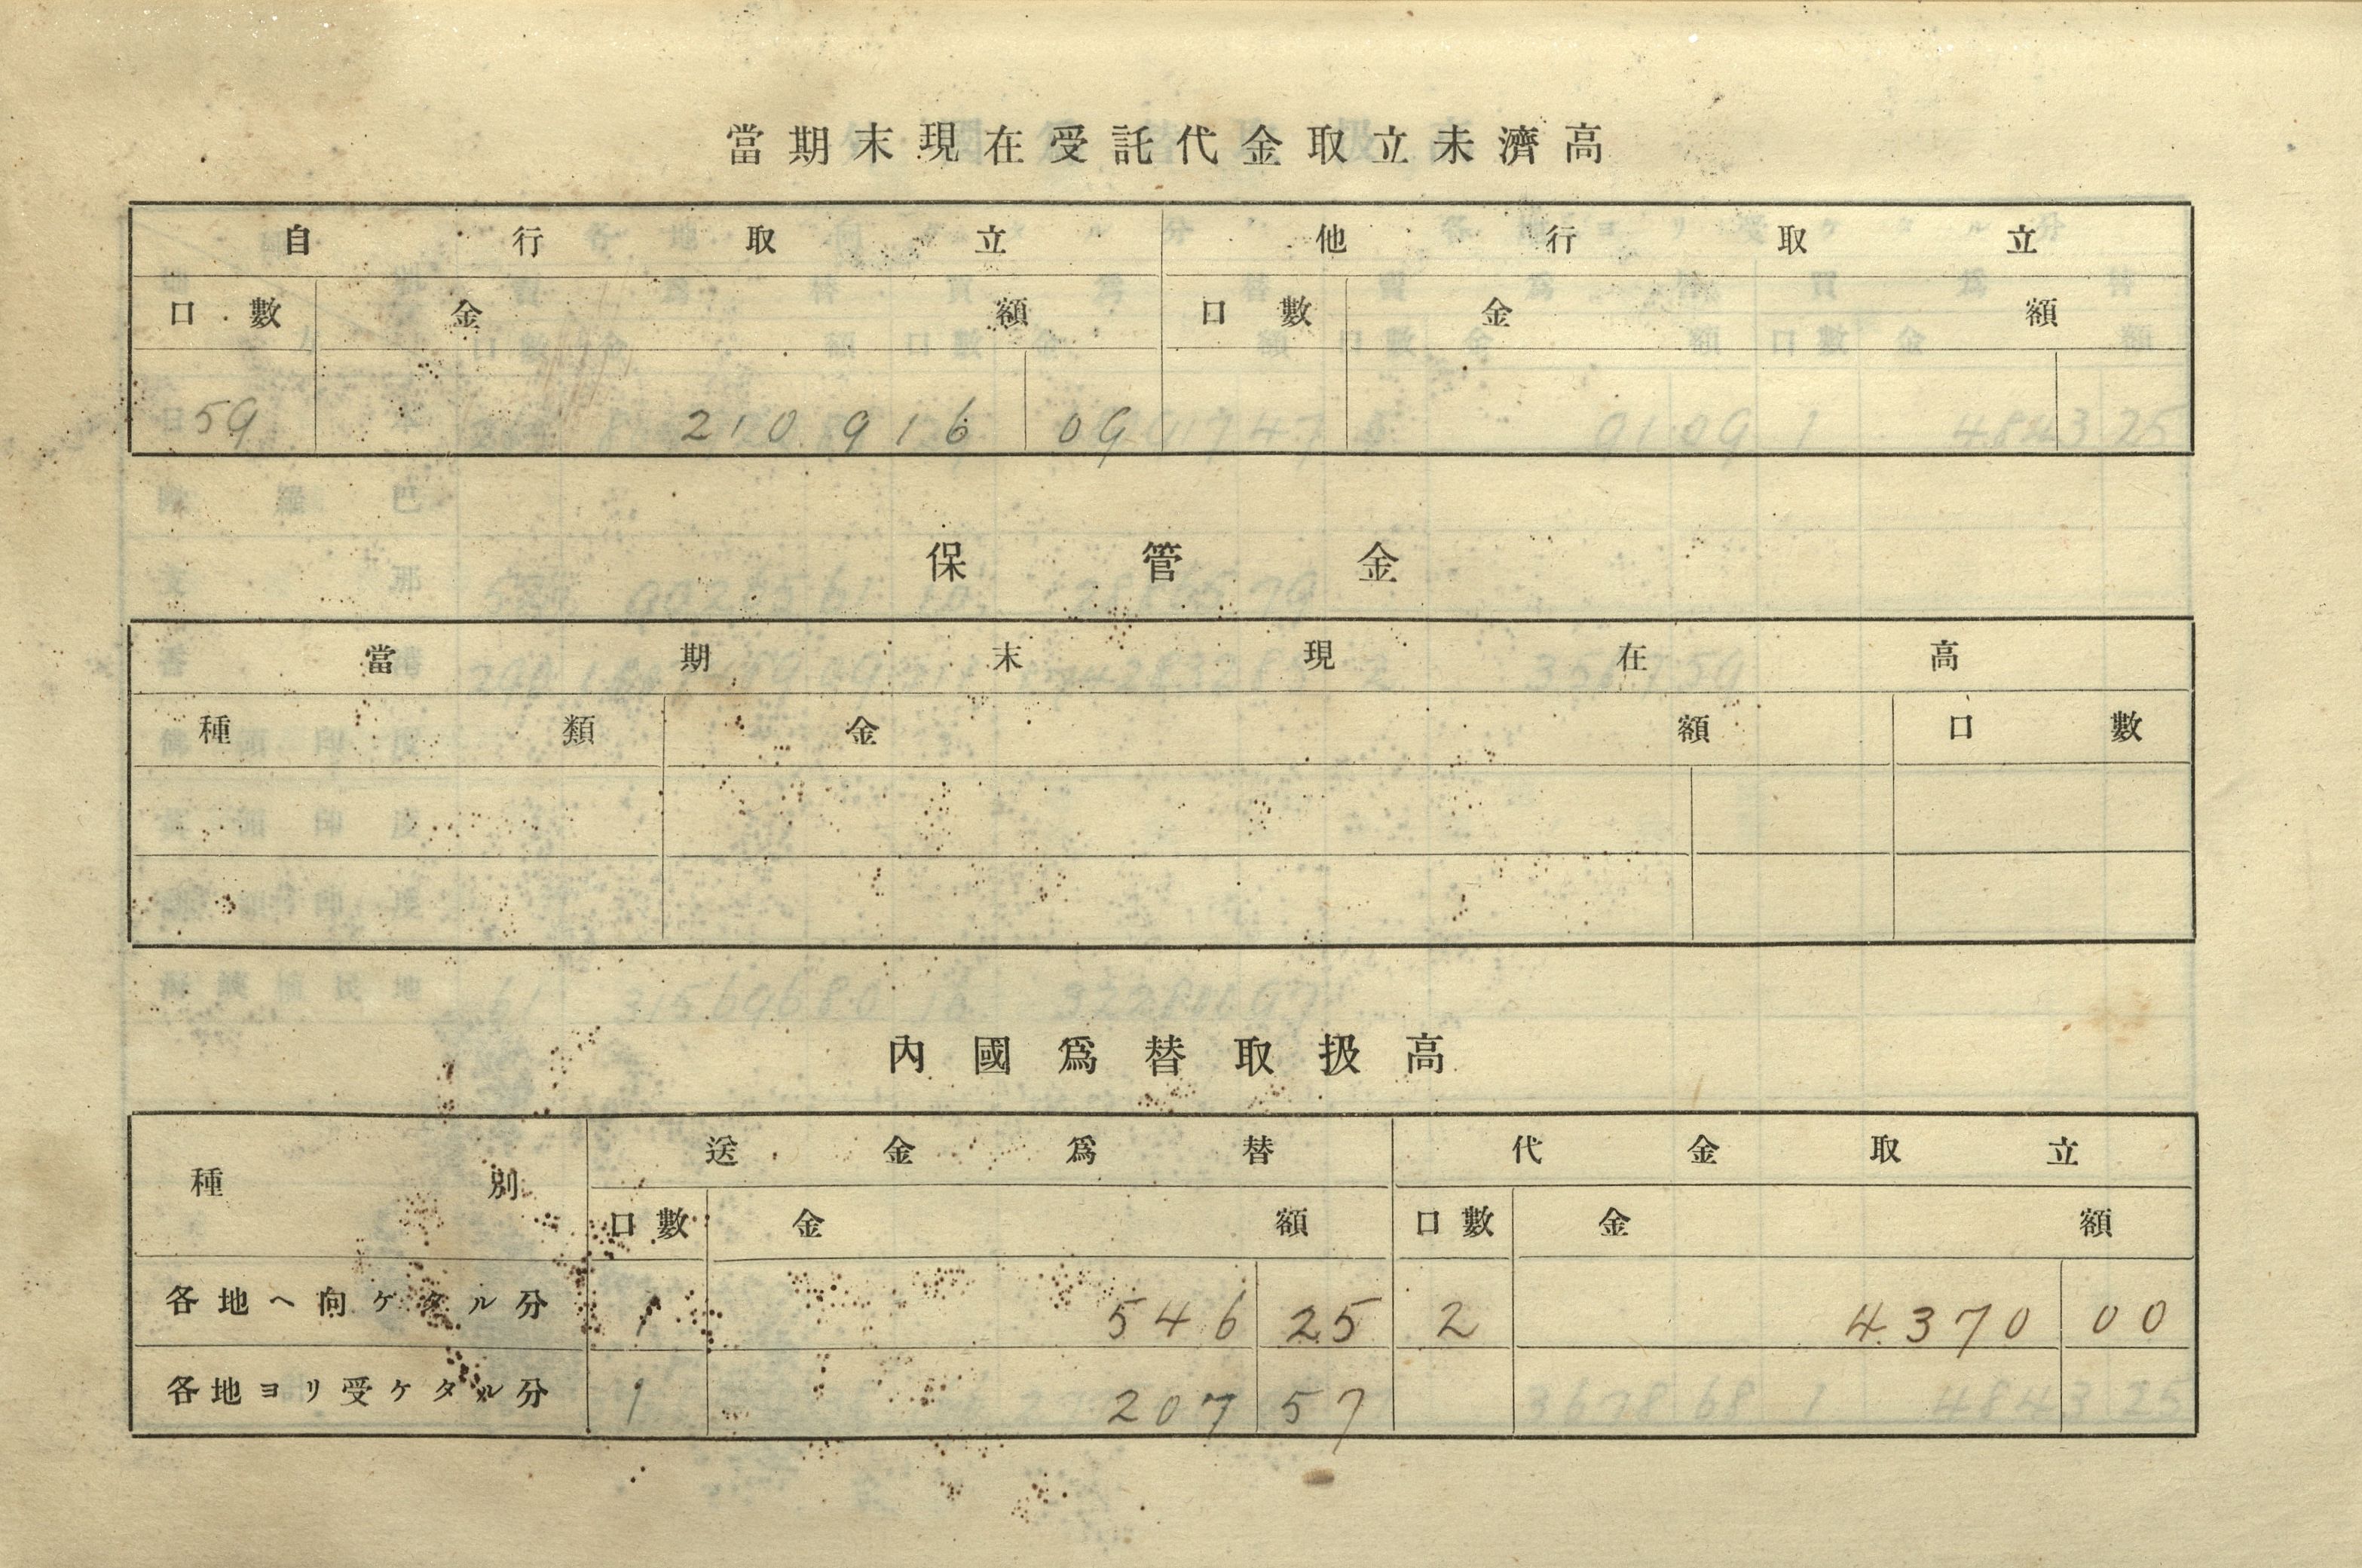 當期末現在受託代金取立未濟高
自行取立 他行取立
口數 金額 口數 金額
59 210 916 09
保管金
當期末現在高
種類 金額 口數
內國爲替取扱高
種別 送金爲替 代金取立
口數 金額 口數 金額
各地ヘ向ケタル分 1 546 25 2 4370 00
各地ヨリ受ケタル分 1 207 57